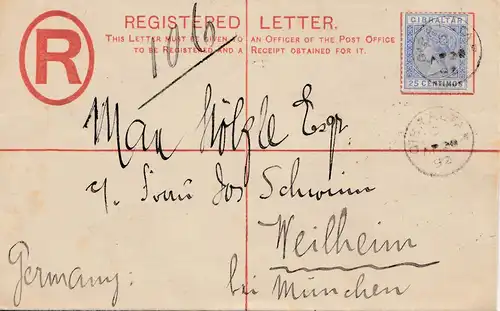 REGISTERED LETTER.
THIS LETTER MUST BE GIVEN TO AN OFFICER OF THE POST OFFICE
TO BE REGISTERED AND A RECEIPT OBTAINED FOR IT.
R
GIBRALTAR
25 CENTIMOS
GIBRALTAR
AP 28
92
Max Hölzle Esqr.
c/. Frau Jos Schwinn
Weilheim
bei München
Germany: